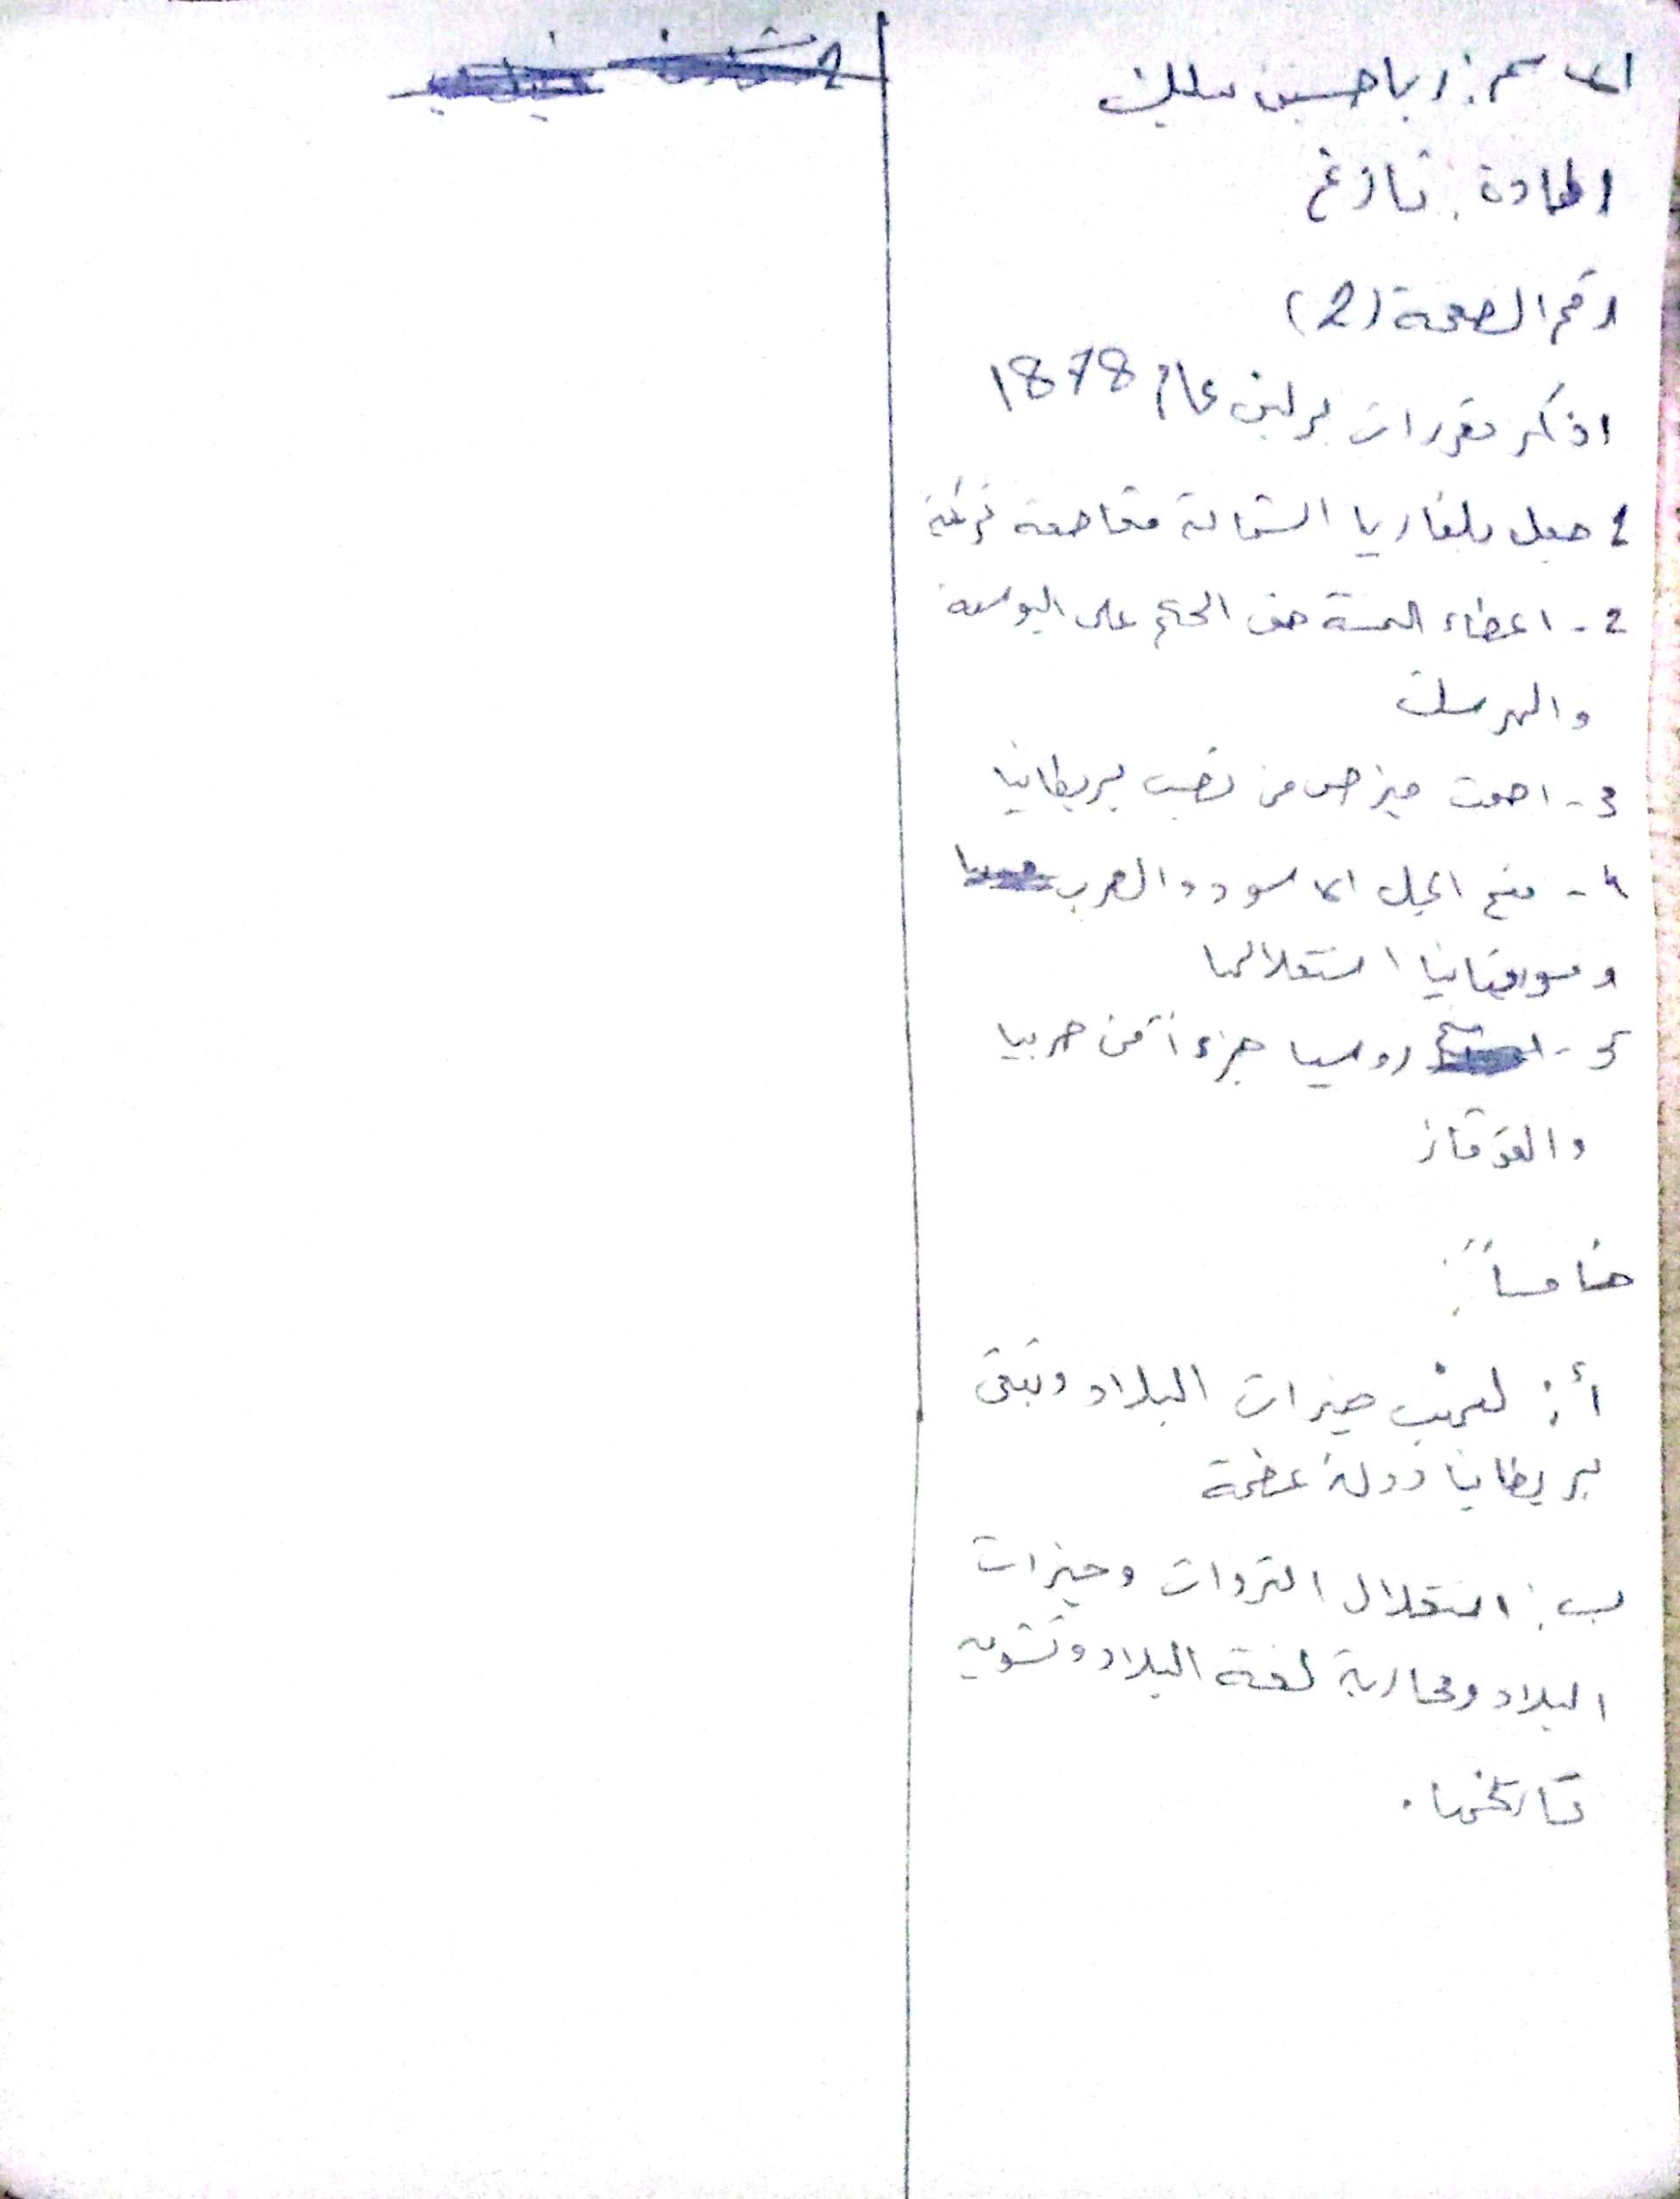 الاسم: ربا حسين
المادة: تاريخ
رقم الصفحة (2)
اذكر مقررات برلين عام 1878
1 جعل بلغاريا الشمالية مقاطعة تركية
2 - اعطاء النمسة حق الحكم على البوسنة
والهرسك
3 - اصبحت قبرص من نصيب بريطانيا
4 - منح الجبل الاسود والصرب
استقلالها
5 - روسيا جزءاً من صربيا
والقوقاز
خامساً:
أ: لنهب خيرات البلاد وتبقى
بريطانيا دولة عظمة
ب: استغلال الثروات وخيرات
البلاد ومحاربة لغة البلاد وتشويه
تاريخها.